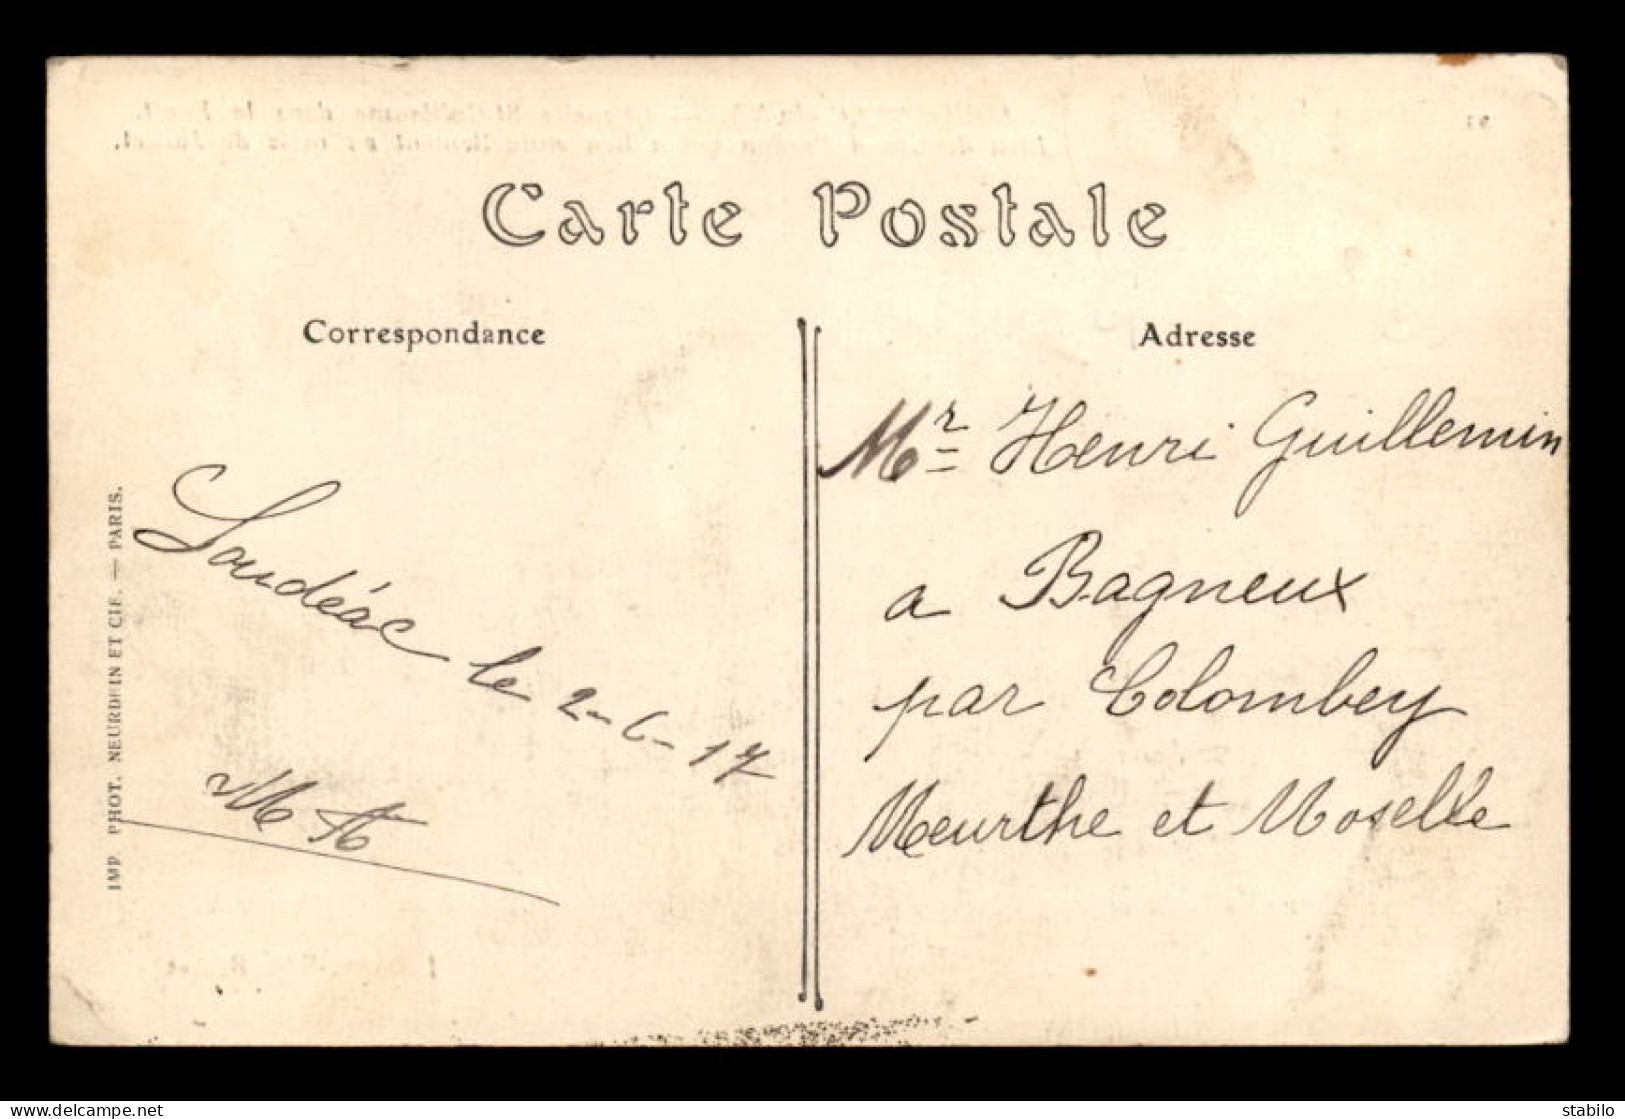 Carte Postale
Correspondance
Loudéac le 2-6-17
IMP. PHOT. NEURDEIN ET CIE. — PARIS.
Adresse
Mr Henri Guillemin
a Bagneux
par Colombey
Meurthe et Moselle
delcampe.net
stabilo